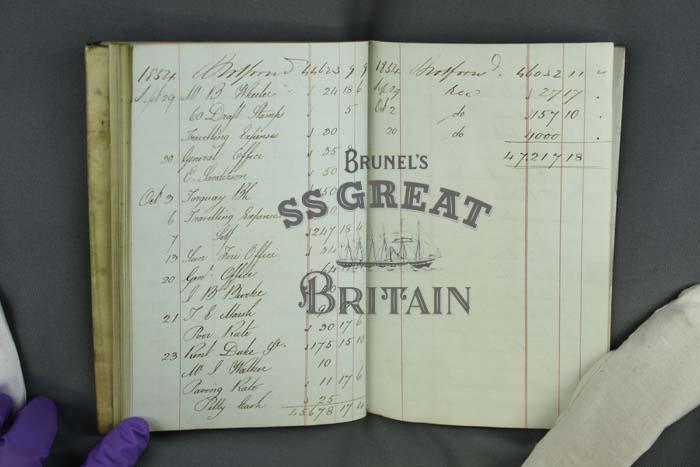 1854 Brot forwd 44623 9 9
Sept 29 Mr B Wheeler 24 18 6
60 Draft Stamps 5
Travelling Expenses 30
30 General Office 35
C. Sanderson 50
Oct 3 Torquay Bh 50
6 Travelling Expenses
7 Self 247 18 4
13 Sun Fire Office 34
20 Genl Office 64
J B Brooke
21 T E Marsh
Poor Rate 30 17 6
23 Rent Duke St 175 15 10
Mr J Walker 10
Paving Rate 11 17 6
Petty Cash 25
45678 17 4
1854 Brot forwd 46032 11 "
Sept 29 Rec 27 17
Oct 2 do 157 10
20 do 1000
47217 18
BRUNEL'S
SS GREAT
BRITAIN